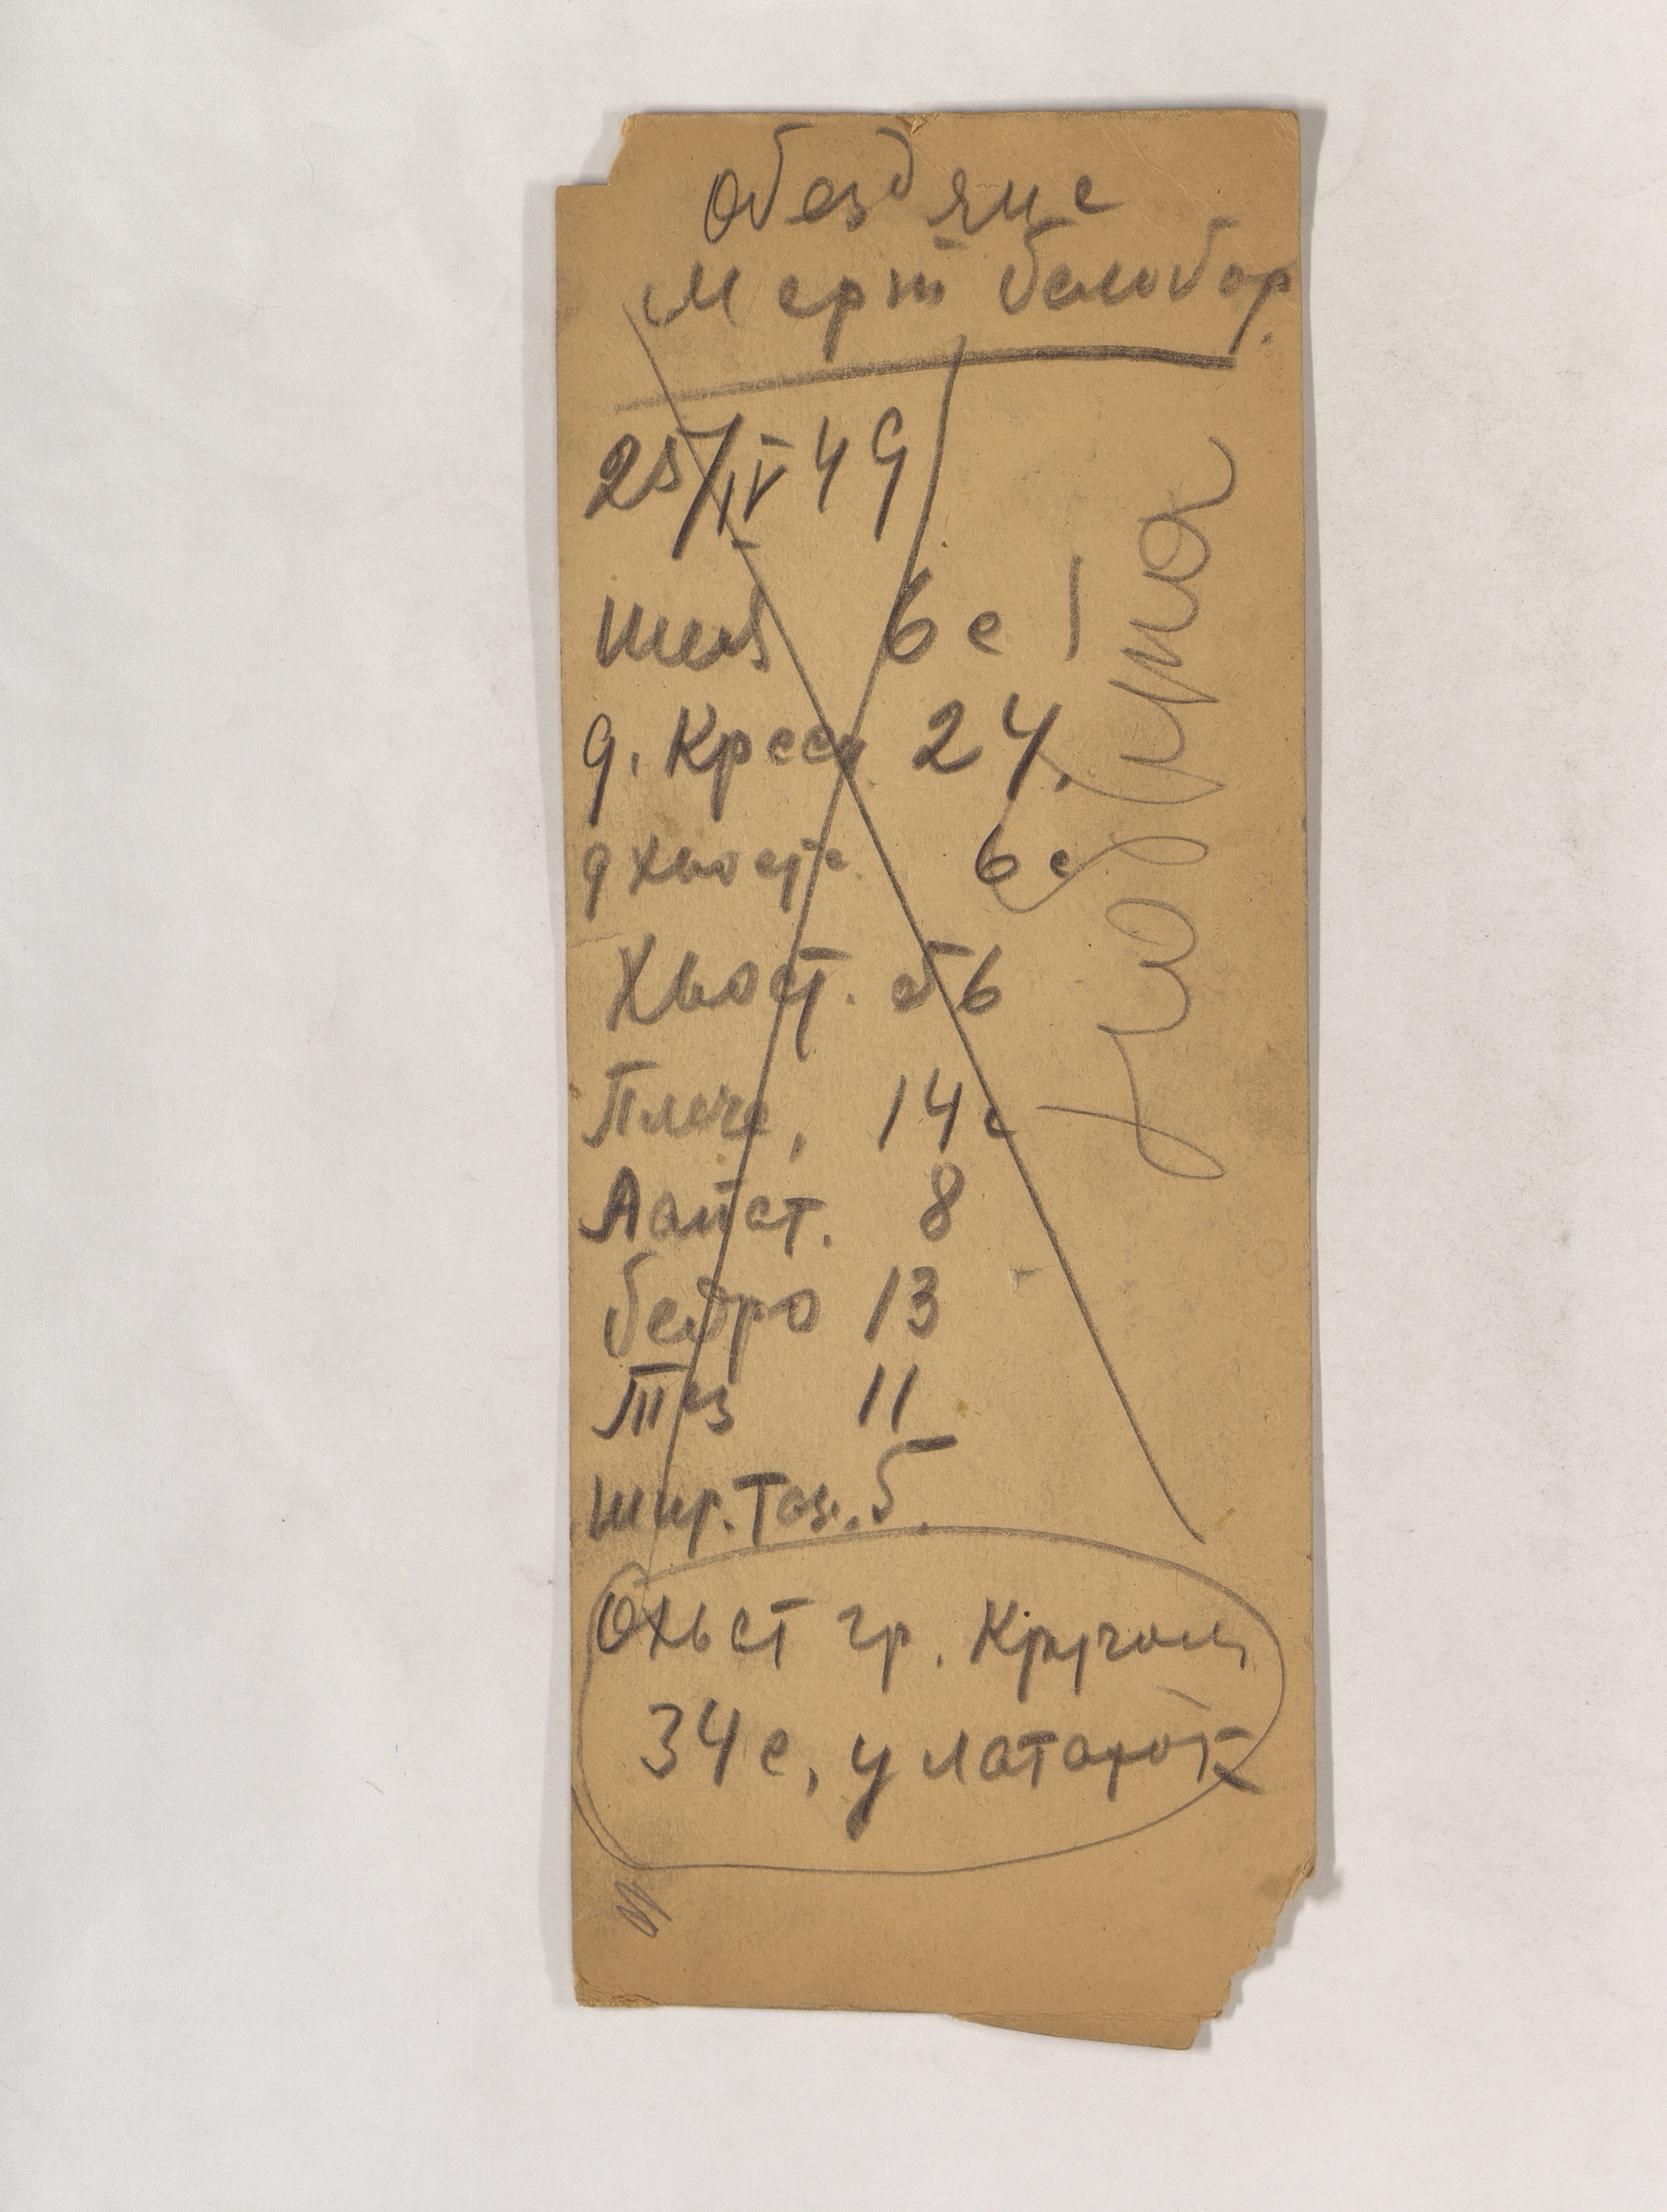 обезьяне
Март белобор.
25/IV 49
шея 6 с
д. Кресц 24.
д хвоста. 6 с.
Хвост. 56
Плече, 14 с
Лапст. 8
бедро 13
Таз 11
шир. Таз. 5.
Охвст гр. Кругом
34 с, у лопаток